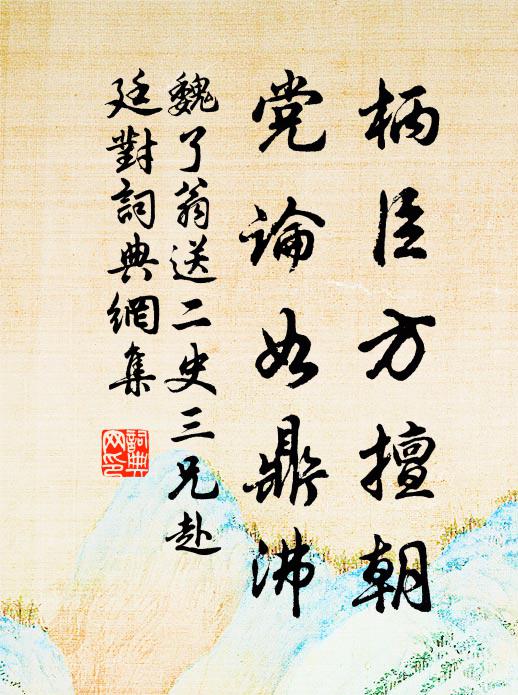 柄臣方擅朝
党論如鼎沸
魏了翁送二史三兄赴
廷對詞典網集
詞典
网印